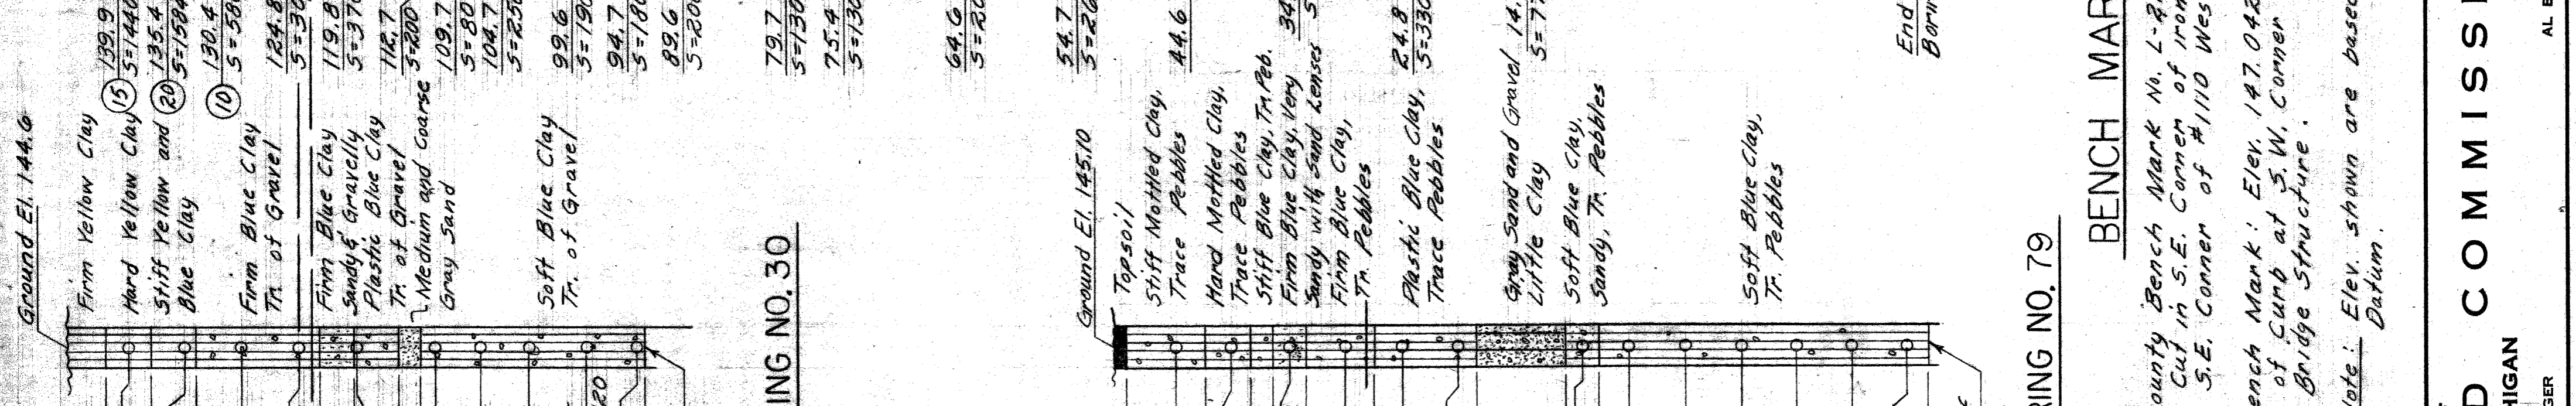 Ground El. 144.6
Firm Yellow Clay
Hard Yellow Clay
Stiff Yellow and
Blue Clay
Firm Blue Clay
Tr. of Gravel
Firm Blue Clay
Sandy & Gravelly
Plastic Blue Clay
Tr. of Gravel
Medium and Coarse
Gray Sand
Soft Blue Clay
Tr. of Gravel
15
20
10
139.9
135.4
130.4
124.8
119.8
112.7
S=200
109.7
S=80
104.7
99.6
94.7
89.6
79.7
75.4
64.6
54.7
44.6
20
ING NO. 30
Ground El. 145.10
Topsoil
Stiff Mottled Clay,
Trace Pebbles
Hard Mottled Clay,
Trace Pebbles
Stiff Blue Clay, Tr. Peb.
Firm Blue Clay, Very
Sandy with Sand Lenses
Firm Blue Clay,
Tr. Pebbles
Plastic Blue Clay,
Trace Pebbles
24.8
Gray Sand and Gravel
Little Clay
Soft Blue Clay,
Sandy, Tr. Pebbles
Soft Blue Clay,
Tr. Pebbles
End
RING NO. 79
BENCH MAR
ounty Bench Mark No. L-2
Cut in S.E. Corner of Iron
S.E. Corner of #1110 Wes
ench Mark: Elev. 147.042
of Curb at S.W. Corner
Bridge Structure.
ote: Elev. shown are based
Datum.
D COMMISS
HIGAN
GER
AL E